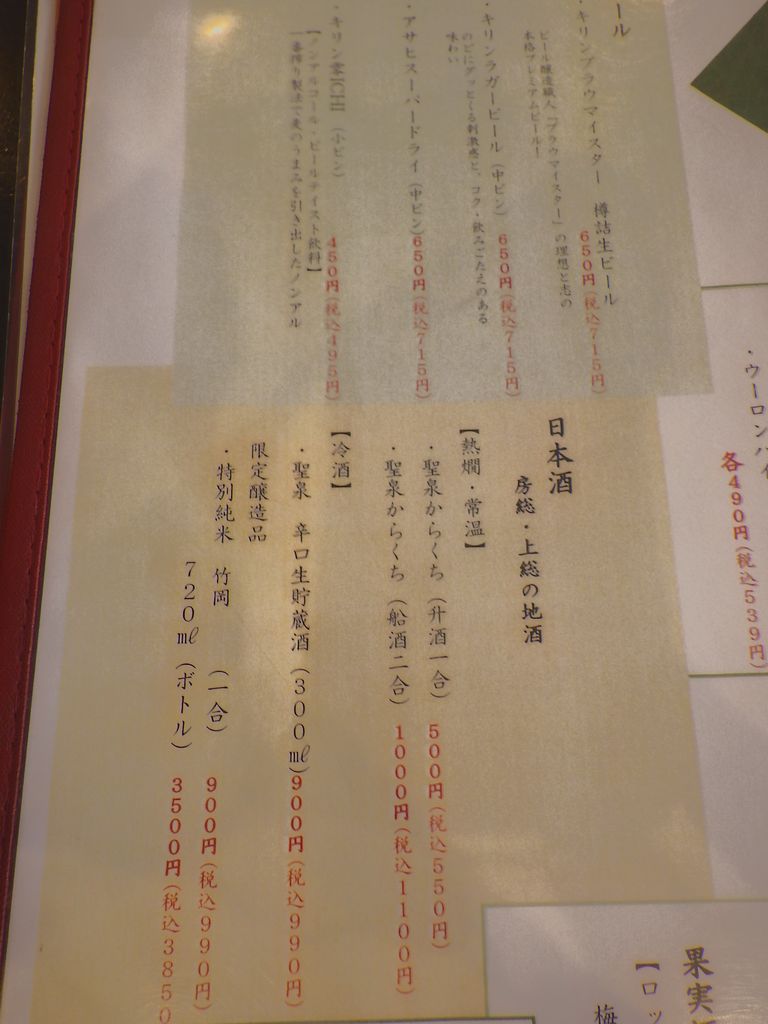 ール
・キリンブラウマイスター 樽詰生ビール
650円(税込715円)
ビール醸造職人「ブラウマイスター」の理想と志の
本格プレミアムビール!
・キリンラガービール(中ビン)
650円(税込715円)
のどにグッとくる刺激感と、コク・飲みごたえのある
味わい
・アサヒスーパードライ(中ビン)650円(税込715円)
・キリン零ICHI(小ビン)
450円(税込495円)
【ノンアルコール・ビールテイスト飲料】
一番搾り製法で麦のうまみを引き出したノンアル
・ウーロンハイ
各490円(税込539円)
日本酒
房総・上総の地酒
【熱燗・常温】
・聖泉からくち(升酒一合) 500円(税込550円)
・聖泉からくち(船酒二合) 1000円(税込1100円)
【冷酒】
・聖泉 辛口生貯蔵酒(300㎖)900円(税込990円)
限定醸造品
・特別純米 竹岡 (一合) 900円(税込990円)
720㎖(ボトル) 3500円(税込3850
果実
【ロッ
梅